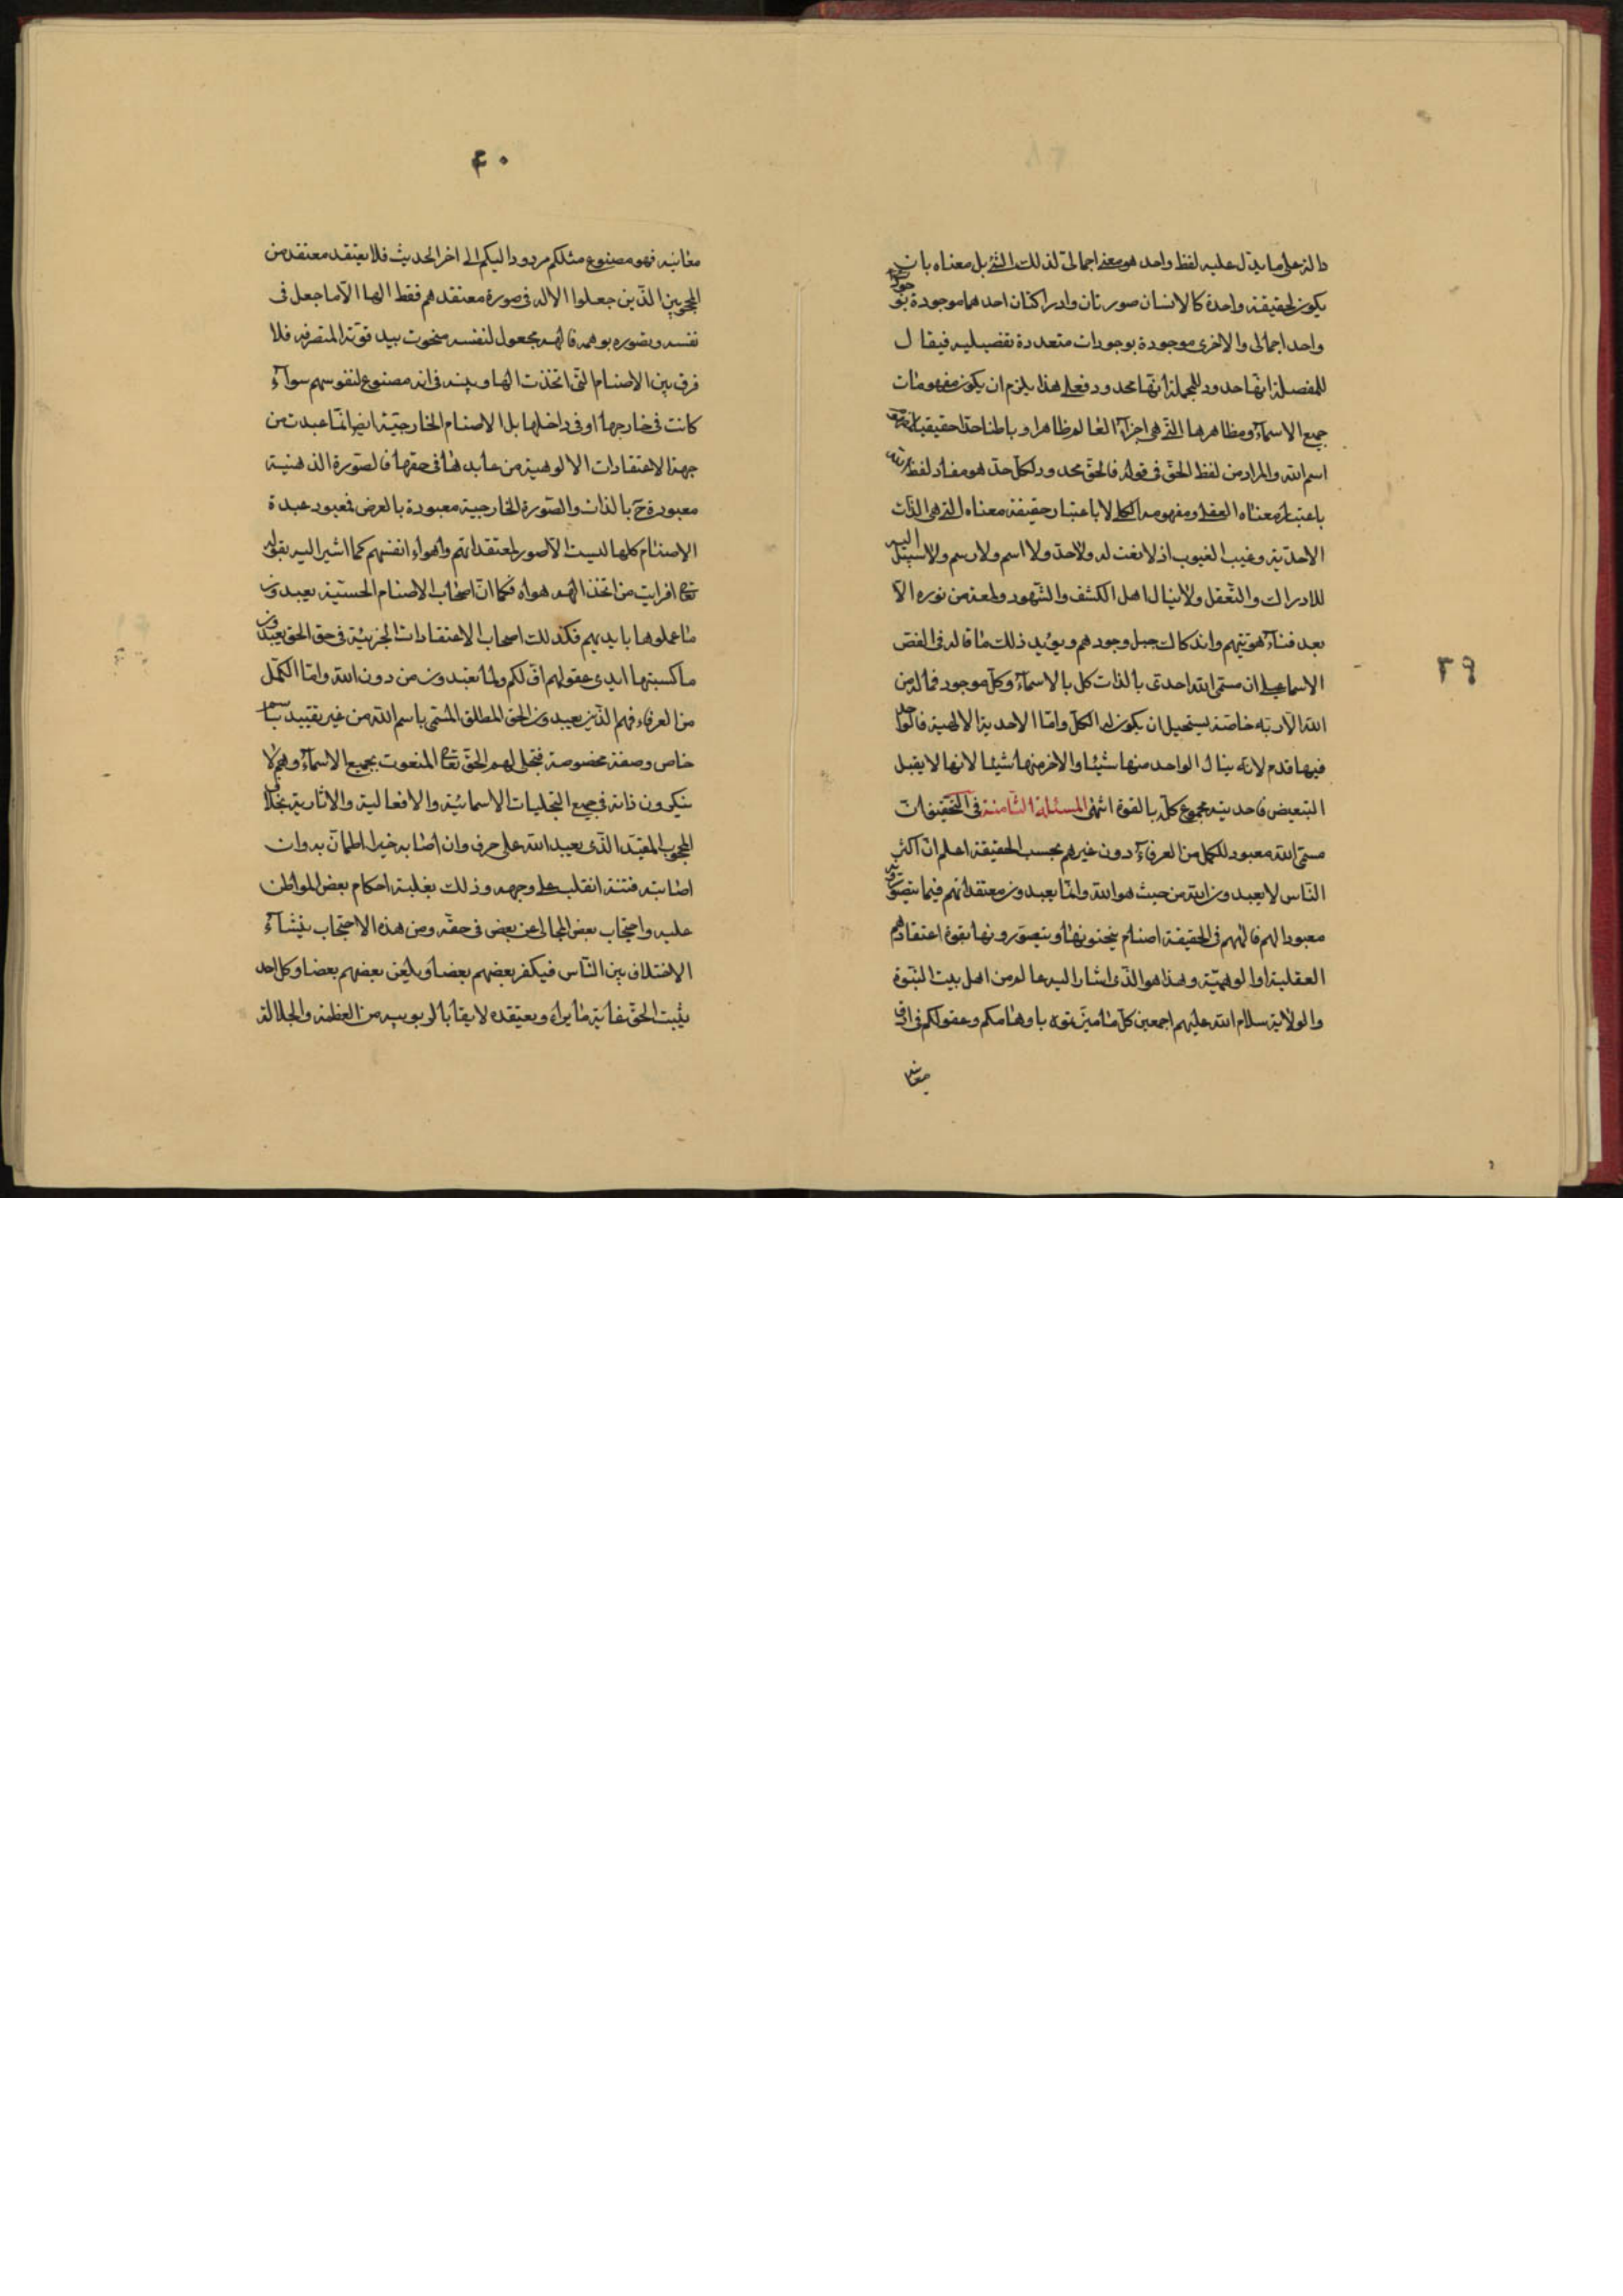 دالة على ما يدل عليه لفظ واحد هو معنى اجمالى لذلك الشئ بل معناه بان
يكون لحقيقة واحدة كالانسان صورتان وادراكتان احدهما موجودة بوجود
واحد اجمالى والاخرى موجودة بوجودات متعددة تفصيليه فيقال
للمفصلة انها حد وللمجملة انها محدود فعلى هذا يلزم ان يكون مفهومات
جميع الاسماء ومظاهرها التى هى اجزاء العالم ظاهرا وباطنا حدا حقيقيا
اسم الله والمراد من لفظ الحق فى قوله فالحق محدود لكل حد هو مفاد لفظ الله
باعتبار معناه العقلى ومفهومه الكلى لا باعتبار حقيقة معناه التى هى الذات
الاحدية وغيب الغيوب اذ لا نعت له ولا حد ولا اسم ولا رسم ولا سبيل اليه
للادراك والتعقل ولا ينال اهل الكشف والشهود ولمعة من نوره الا
بعد فناء هويتهم واندكاك جبل وجودهم ويؤيد ذلك ما قاله فى الفص
الاسماعيلى ان مسمى الله احدى بالذات كل بالاسماء وكل موجود فما له من
الله الا ربه خاصة يستحيل ان يكون له الكل واما الاحدية الالهية فما لواحد
فيها قدم لانه ينال الواحد منها شيئا والاخر منها شيئا لانها لا يقبل
التبعيض فاحديته مجموع كله بالقوة انتهى المسئلة الثامنة فى تحقيق ان
مسمى الله معبود للكمل من العرفاء دون غيرهم بحسب الحقيقة اعلم ان اكثر
الناس لا يعبدون الله من حيث هو الله وانما يعبدون معتقداتهم فيما يتصورونه
معبودا لهم فالههم فى الحقيقة اصنام ينحتونها ويتصورونها بقوة اعتقاداهم
العقلية او الوهمية وهذا هو الذى اشار اليه عالم من اهل بيت النبوة
والولاية سلام الله عليهم اجمعين كل ما ميزتموه باوهامكم وعقولكم فى ادق
معانيه
٣٩
٤٠
معانيه فهو مصنوع مثلكم مردود اليكم الى اخر الحديث فلا يعتقد معتقد من
المحجوبين الذين جعلوا الاله فى صورة معتقدهم فقط الها الا ما جعل فى
نفسه وتصوره بوهمه فالهه مجعول لنفسه منحوت بيد قوته المتصرفه فلا
فرق بين الاصنام التى اتخذت الها وبينه فى انه مصنوع لنفوسهم سواء
كانت فى خارجها او فى داخلها بل الاصنام الخارجية ايض انما عبدت من
جهة الاعتقادات الالوهية من عابدها فى حقها فالصورة الذهنية
معبودة ح بالذات والصورة الخارجية معبودة بالعرض فمعبود عبدة
الاصنام كلها ليست الا صور معتقداتهم واهواء انفسهم كما اشير اليه بقوله
تعالى افرايت من اتخذ الهه هواه فكما ان اصحاب الاصنام الحسية يعبدون
ما عملوها بايديهم فكذلك اصحاب الاعتقادات الجزئية فى حق الحق يعبدون
ما كسبتها ايدى عقولهم اف لكم ولما تعبدون من دون الله واما الكمل
من العرفاء فهم الذين يعبدون الحق المطلق المسمى باسم الله من غير تقييد باسم
خاص وصفة مخصوصة فتجلى لهم الحق تعالى المنعوت بجميع الاسماء وهم لا
ينكرون ذاته فى جميع التجليات الاسمائية والافعالية والاثارية بخلاف
المحجوب المقيد الذى يعبد الله على حرف وان اصابه خير اطمان به وان
اصابته فتنة انقلب على وجهه وذلك بغلبة احكام بعض المواطن
عليه واحتجاب بعض المجالى عن بعض فى حقه ومن هذه الاحتجاب ينشاء
الاختلاف بين الناس فيكفر بعضهم بعضا ويلعن بعضهم بعضا وكل احد
يثبت الحق بغاية ما يراه ويعتقده لايقا بالربوبيه من العظمة والجلالة